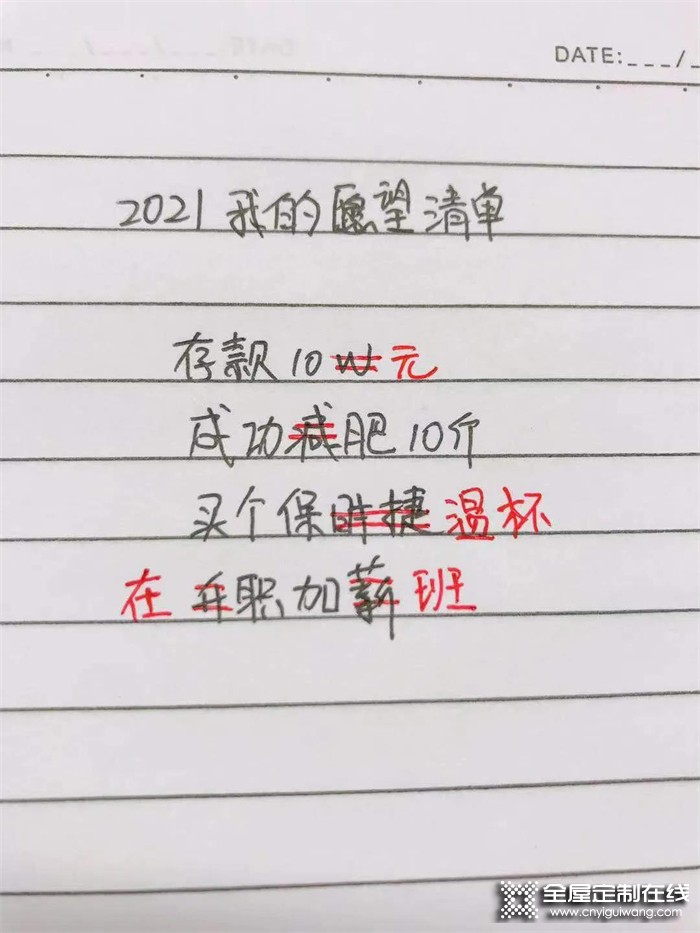 DATE:___/_
2021 我的愿望清单
存款10W元
成功减肥10斤
买个保时捷温杯
在升职加薪班
全屋定制在线
www.cnyiguiwang.com